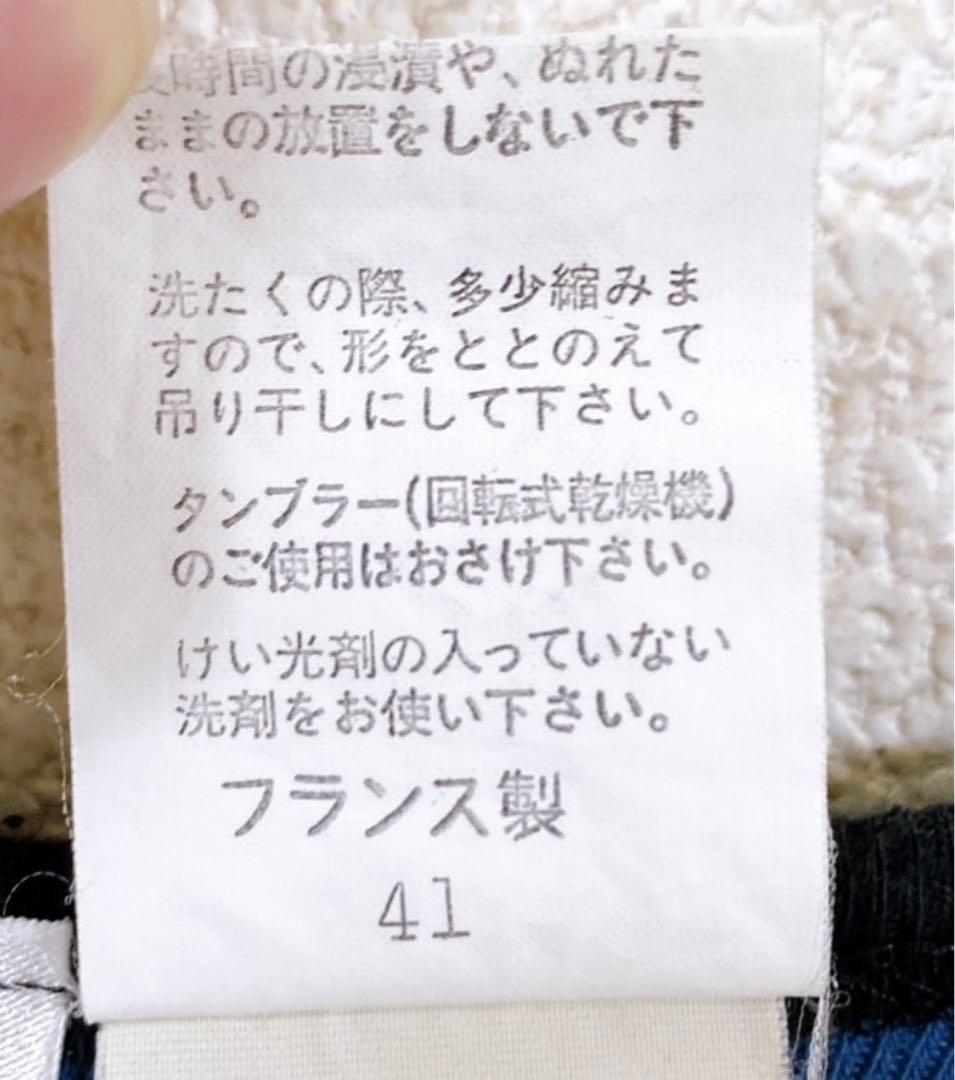 長時間の浸漬や、ぬれた
ままの放置をしないで下
さい。
洗たくの際、多少縮みま
すので、形をととのえて
吊り干しにして下さい。
タンブラー(回転式乾燥機)
のご使用はおさけ下さい。
けい光剤の入っていない
洗剤をお使い下さい。
フランス製
41